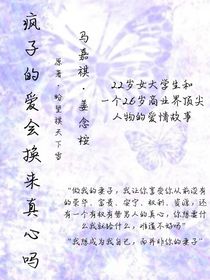 疯子的爱会换来真心吗
马嘉祺·姜念桉
原著·盼望祺天下雪
22岁女大学生和
一个26岁商业界顶尖
人物的爱情故事
“做我的妻子，我让你享受你从前没有
的荣华、富贵、安宁、权利、资源，还
有一个有权有势男人的真心，你想要什
么我就给什么，难道不好吗”
“我想成为我自己，而并非你的妻子”